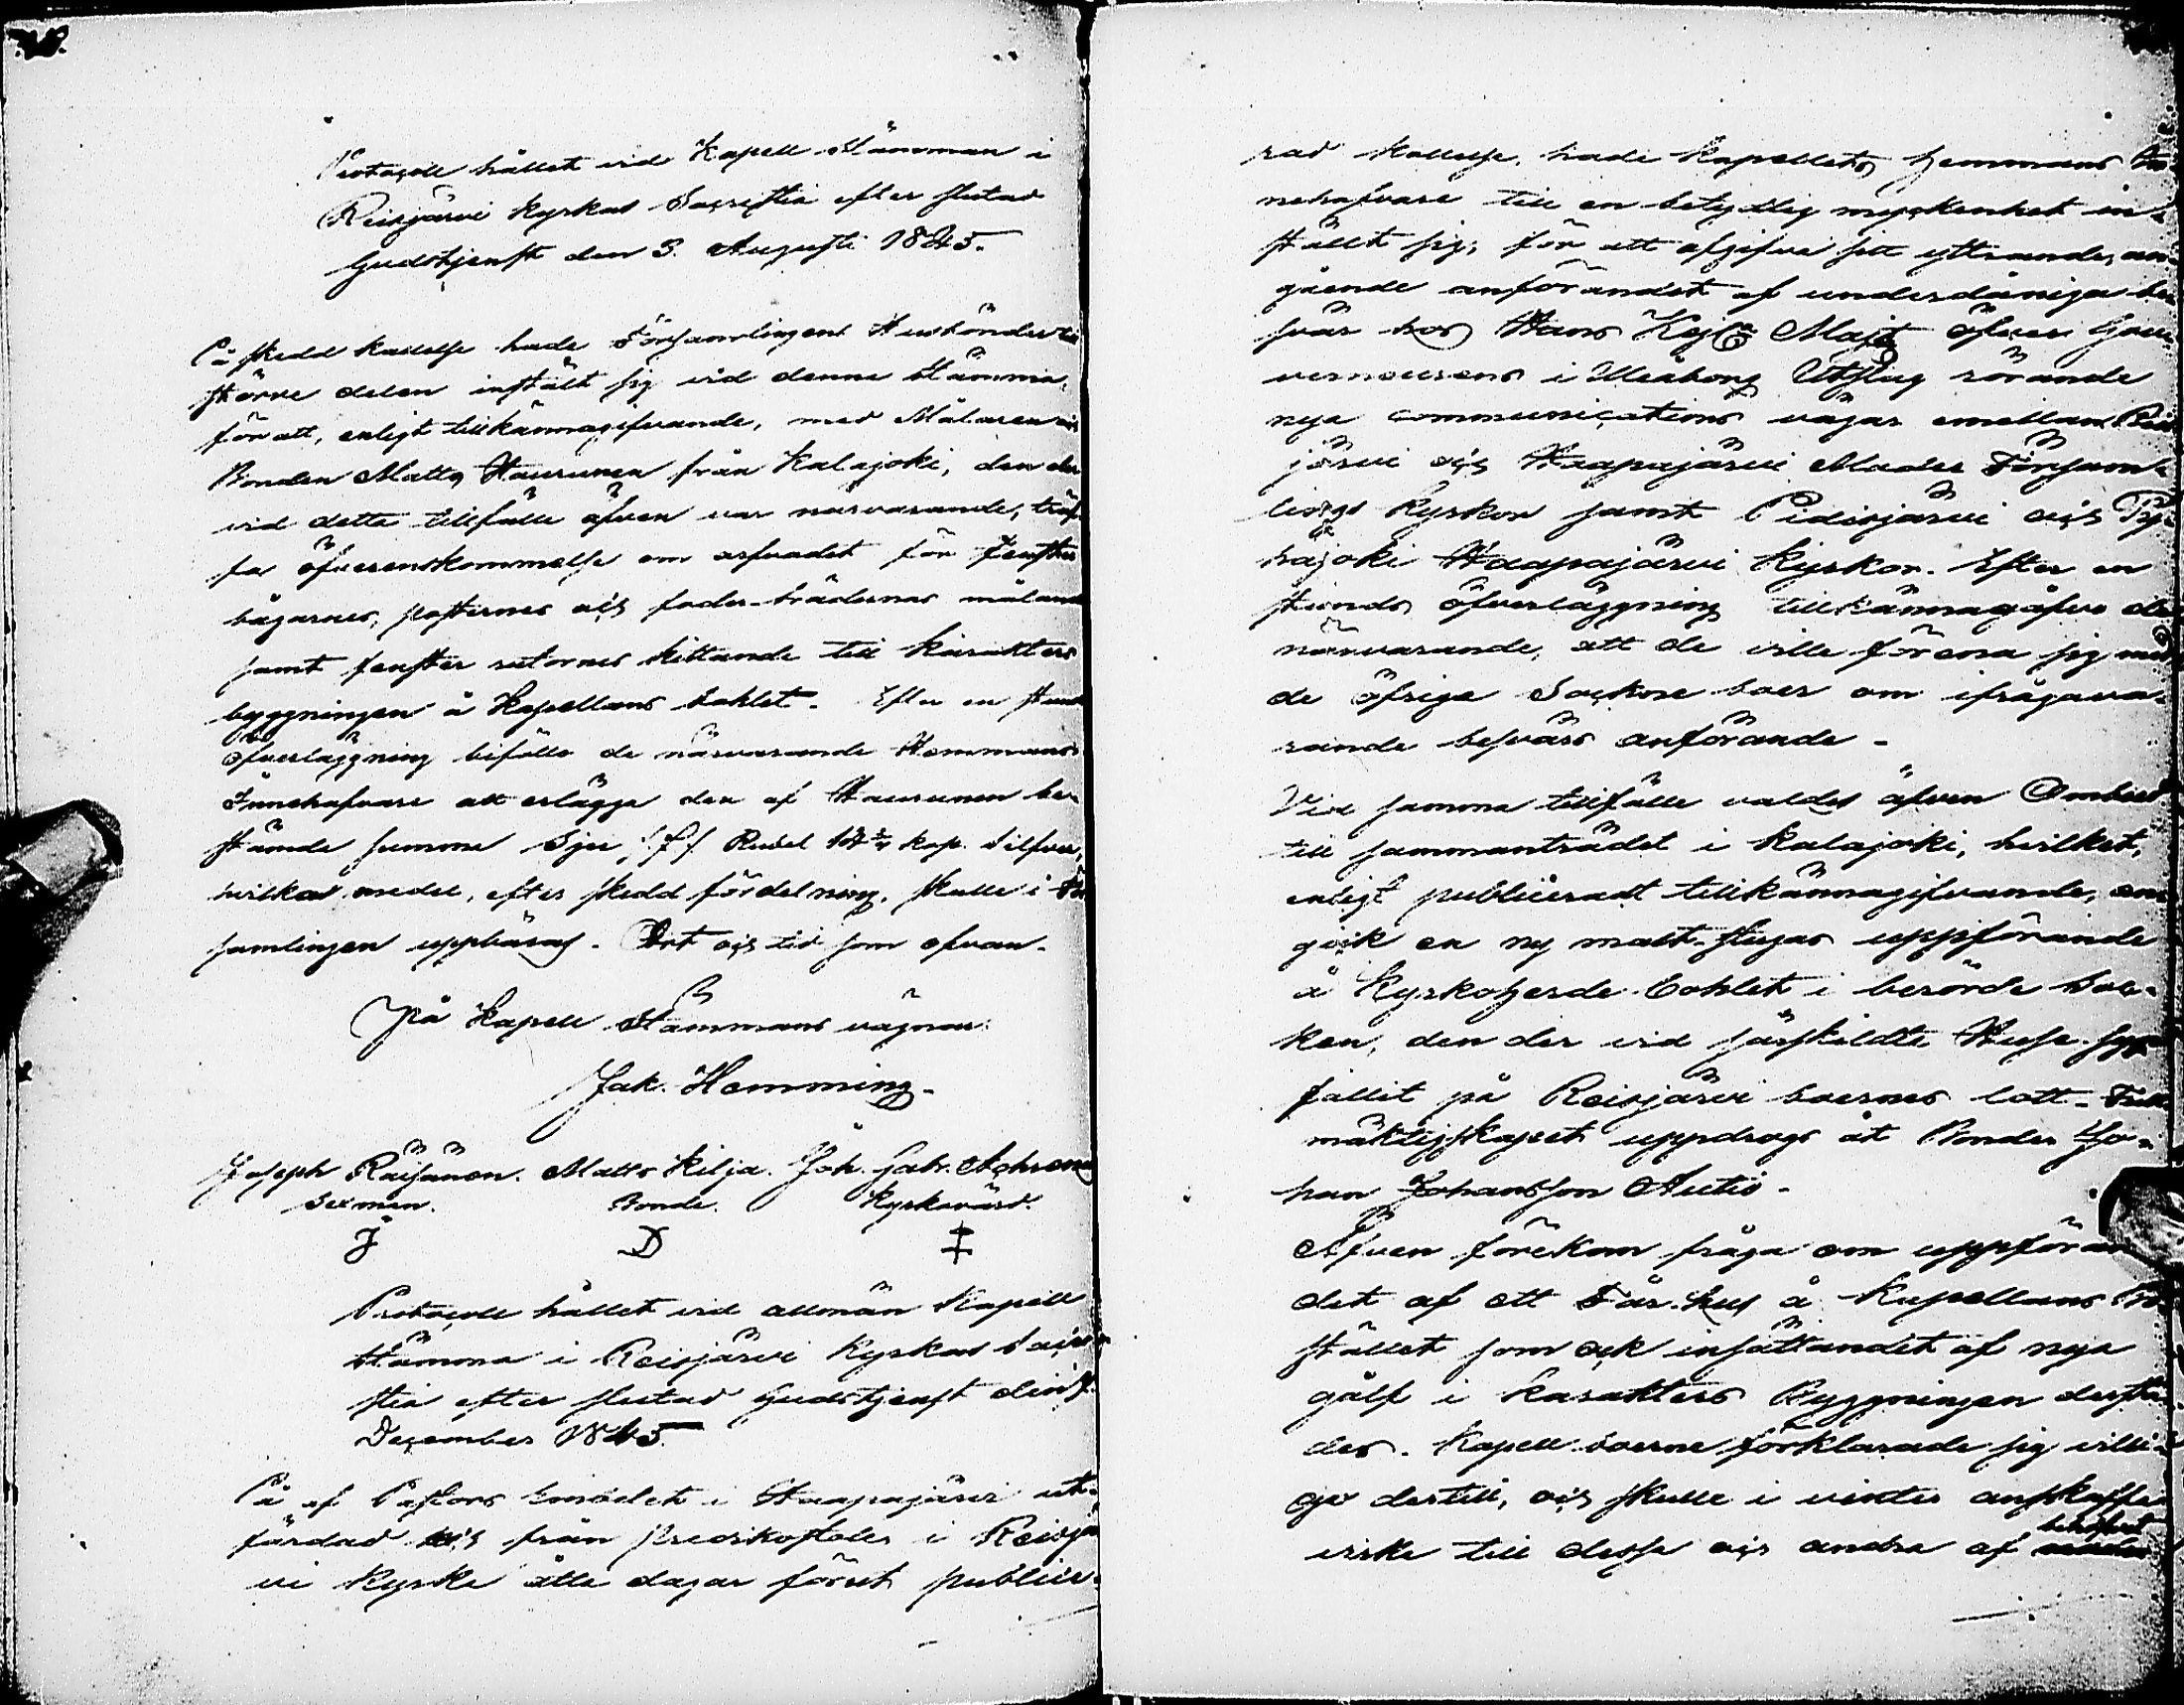 Protocoll hållet vid Kapell Stämman i
Reisjärvi Kyrkas Sacristia efter slutad
Gudstjenst den 3. Augusti 1845.
På skedd kallelse hade Församlingens Husbönder till
större delen instält sig vid denna Stämma,
för att, enligt tillkännagifvande, med Målaren och
Bonden Matts Haurunen från Kalajoki, den der
vid dette tillfälle äfven var närvarande, träf-
fa öfverenskommelse om arfvodet för fenster
bågarnes, posternes och foder-brädernas målande
samt fenster rutornes kittande till karakters
byggningen å Kapellans bohlet. Efter en stunds
öfverläggning biföllo de närvarande Hemmans
Innehafvare att erlägga den af Haurunen be-
stämda summa Sju /7/ Rubel 14 2/7 kop. Silfver,
hvilka medel, efter skedd fördelning, skulle i För
samlingen uppbäras. Ort och tid som ofvan.
På Kapell Stämmans vägnar:
Jak. Hemming.
Joseph Räisänen. Matts Kilja. Joh. Gabr. Achrenius
Sexman. Bonde. Kyrkovärd.
J D ‡
Protocoll hållet vid allmän Kapell
Stämma i Reisjärvi Kyrkas Sacri
stia efter slutad Gudstjenst den 7.
December 1845.
På af Pastors Embetet i Haapajärvi ut-
färdad och från Predikostolen i Reisjär
vi Kyrka åtta dagar förut publice-
rad kallelse, hade Kapellets Hemmans In
nehafvare till en betydlig myckenhet in-
ställt sig, för att afgifva sitt yttrande, an-
gående anförandet af underdåniga be-
svär hos Hans Kejs. Majt öfver Gou-
verneurens i Uleåborg Utslag rörande
nya communications vägar emellan Reis
järvi och Haapajärvi Moder Försam-
lings Kyrkor samt Pidisjärvi och Py-
häjoki Haapajärvi Kyrkor. Efter en
stunds öfverläggning tillkännagåfvo de
närvarande, att de ville förena sig med
de öfriga Sockne boer om ifrågava-
rande besvärs anförande.
Vid samma tillfälle valdes äfven Ombud
till sammanträdet i Kalajoki, hvilket,
enligt publiceradt tillkännagifvande, an
gick en ny malt-stugas uppförande
å Kyrkoherde Bohlet i berörde Soc-
ken, den der vid särskildte Huse syn
fallit på Reisjärvi boernes lott. Full
mäktigskapet uppdrogs åt Bonden Jo-
han Johansson Autio.
Äfven förekom fråga om uppföran
det af ett Får-hus å Kapellans Bo-
stället som ock insättandet af nya
golf i karakters Byggningen dersta
des. Kapell boerne förklarade sig villi-
ge dertill, och skulle i vinter anskaffa
virke till dessa och andra af behofvet